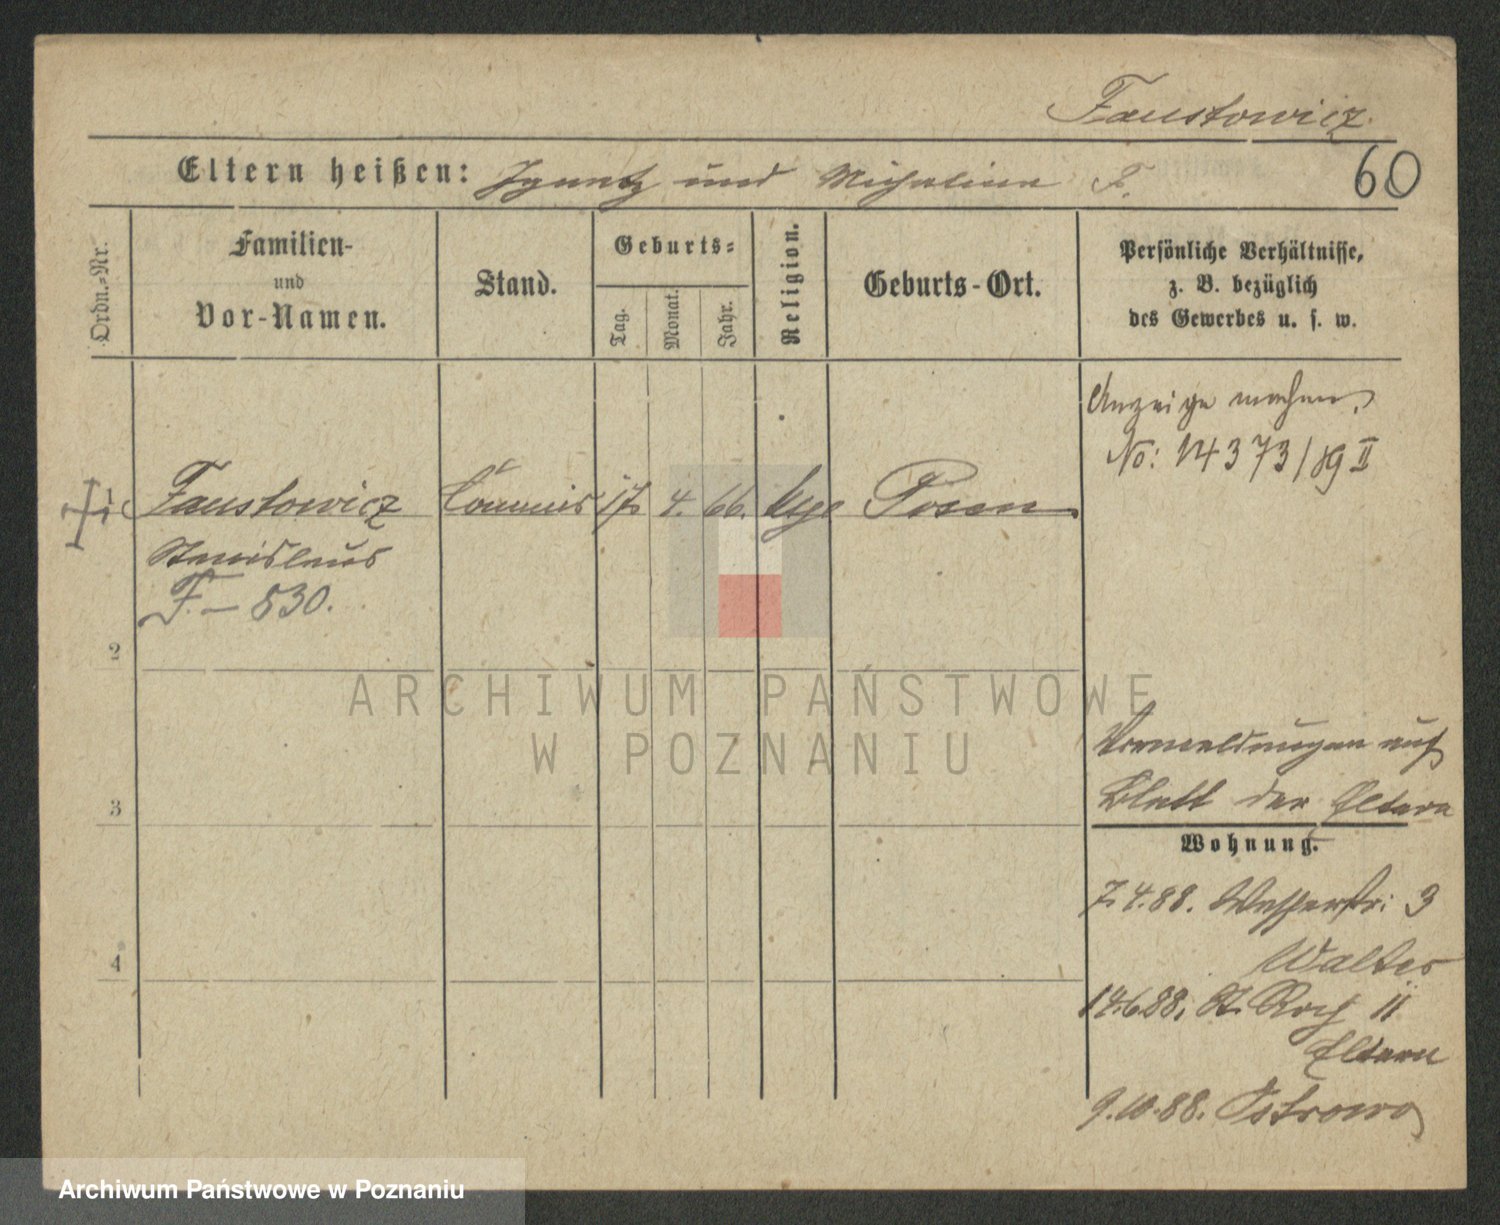 Faustowicz
Eltern heißen: Ignatz und Michalina F.
60
Ordn.-Nr.
Familien-
und
Vor-Namen.
Stand.
Geburts-
Tag.
Monat.
Jahr.
Religion.
Geburts-Ort.
Persönliche Verhältnisse,
z. B. bezüglich
des Gewerbes u. s. w.
Anzeige machen.
No: 14373/89 II
1 Faustowicz Commis 17. 4. 66. Posen
Stanislaus
F. — 530.
2
3
4
Vormeldungen auf
Blatt der Eltern
Wohnung.
7.4.88. 3
Walter
14.6.88. St. Roch 11
Eltern
9.10.88. Ostrowo
ARCHIWUM PAŃSTWOWE
W POZNANIU
Archiwum Państwowe w Poznaniu